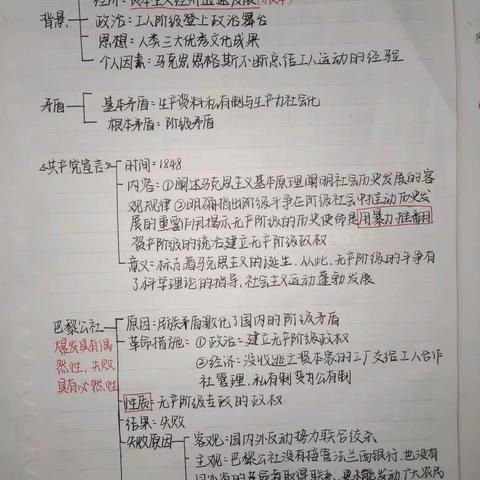 经济：资本主义经济迅速发展（根本）
背景
政治：工人阶级登上政治舞台
思想：人类三大优秀文化成果
个人因素：马克思恩格斯不断总结工人运动的经验
矛盾
基本矛盾：生产资料私有制与生产力社会化
根本矛盾：阶级矛盾
《共产党宣言》
时间：1848
内容：①阐述马克思主义基本原理，阐明社会历史发展的客
观规律②明确指出阶级斗争在阶级社会中推动历史发
展的重要作用揭示无产阶级的历史使命是用暴力推翻
资产阶级的统治建立无产阶级政权
意义：标志着马克思主义的诞生，从此，无产阶级的斗争有
了科学理论的指导，社会主义运动蓬勃发展
巴黎公社
爆发具有偶
然性，失败
具有必然性
原因：民族矛盾激化了国内的阶级矛盾
革命措施：①政治：建立无产阶级政权
②经济：没收逃亡资本家的工厂交给工人合作
社管理，私有制变为公有制
性质：无产阶级专政的政权
结果：失败
失败原因
客观：国内外反动势力联合绞杀
主观：巴黎公社没有接管法兰西银行，也没有
革命者取得联系，更未能发动广大农民